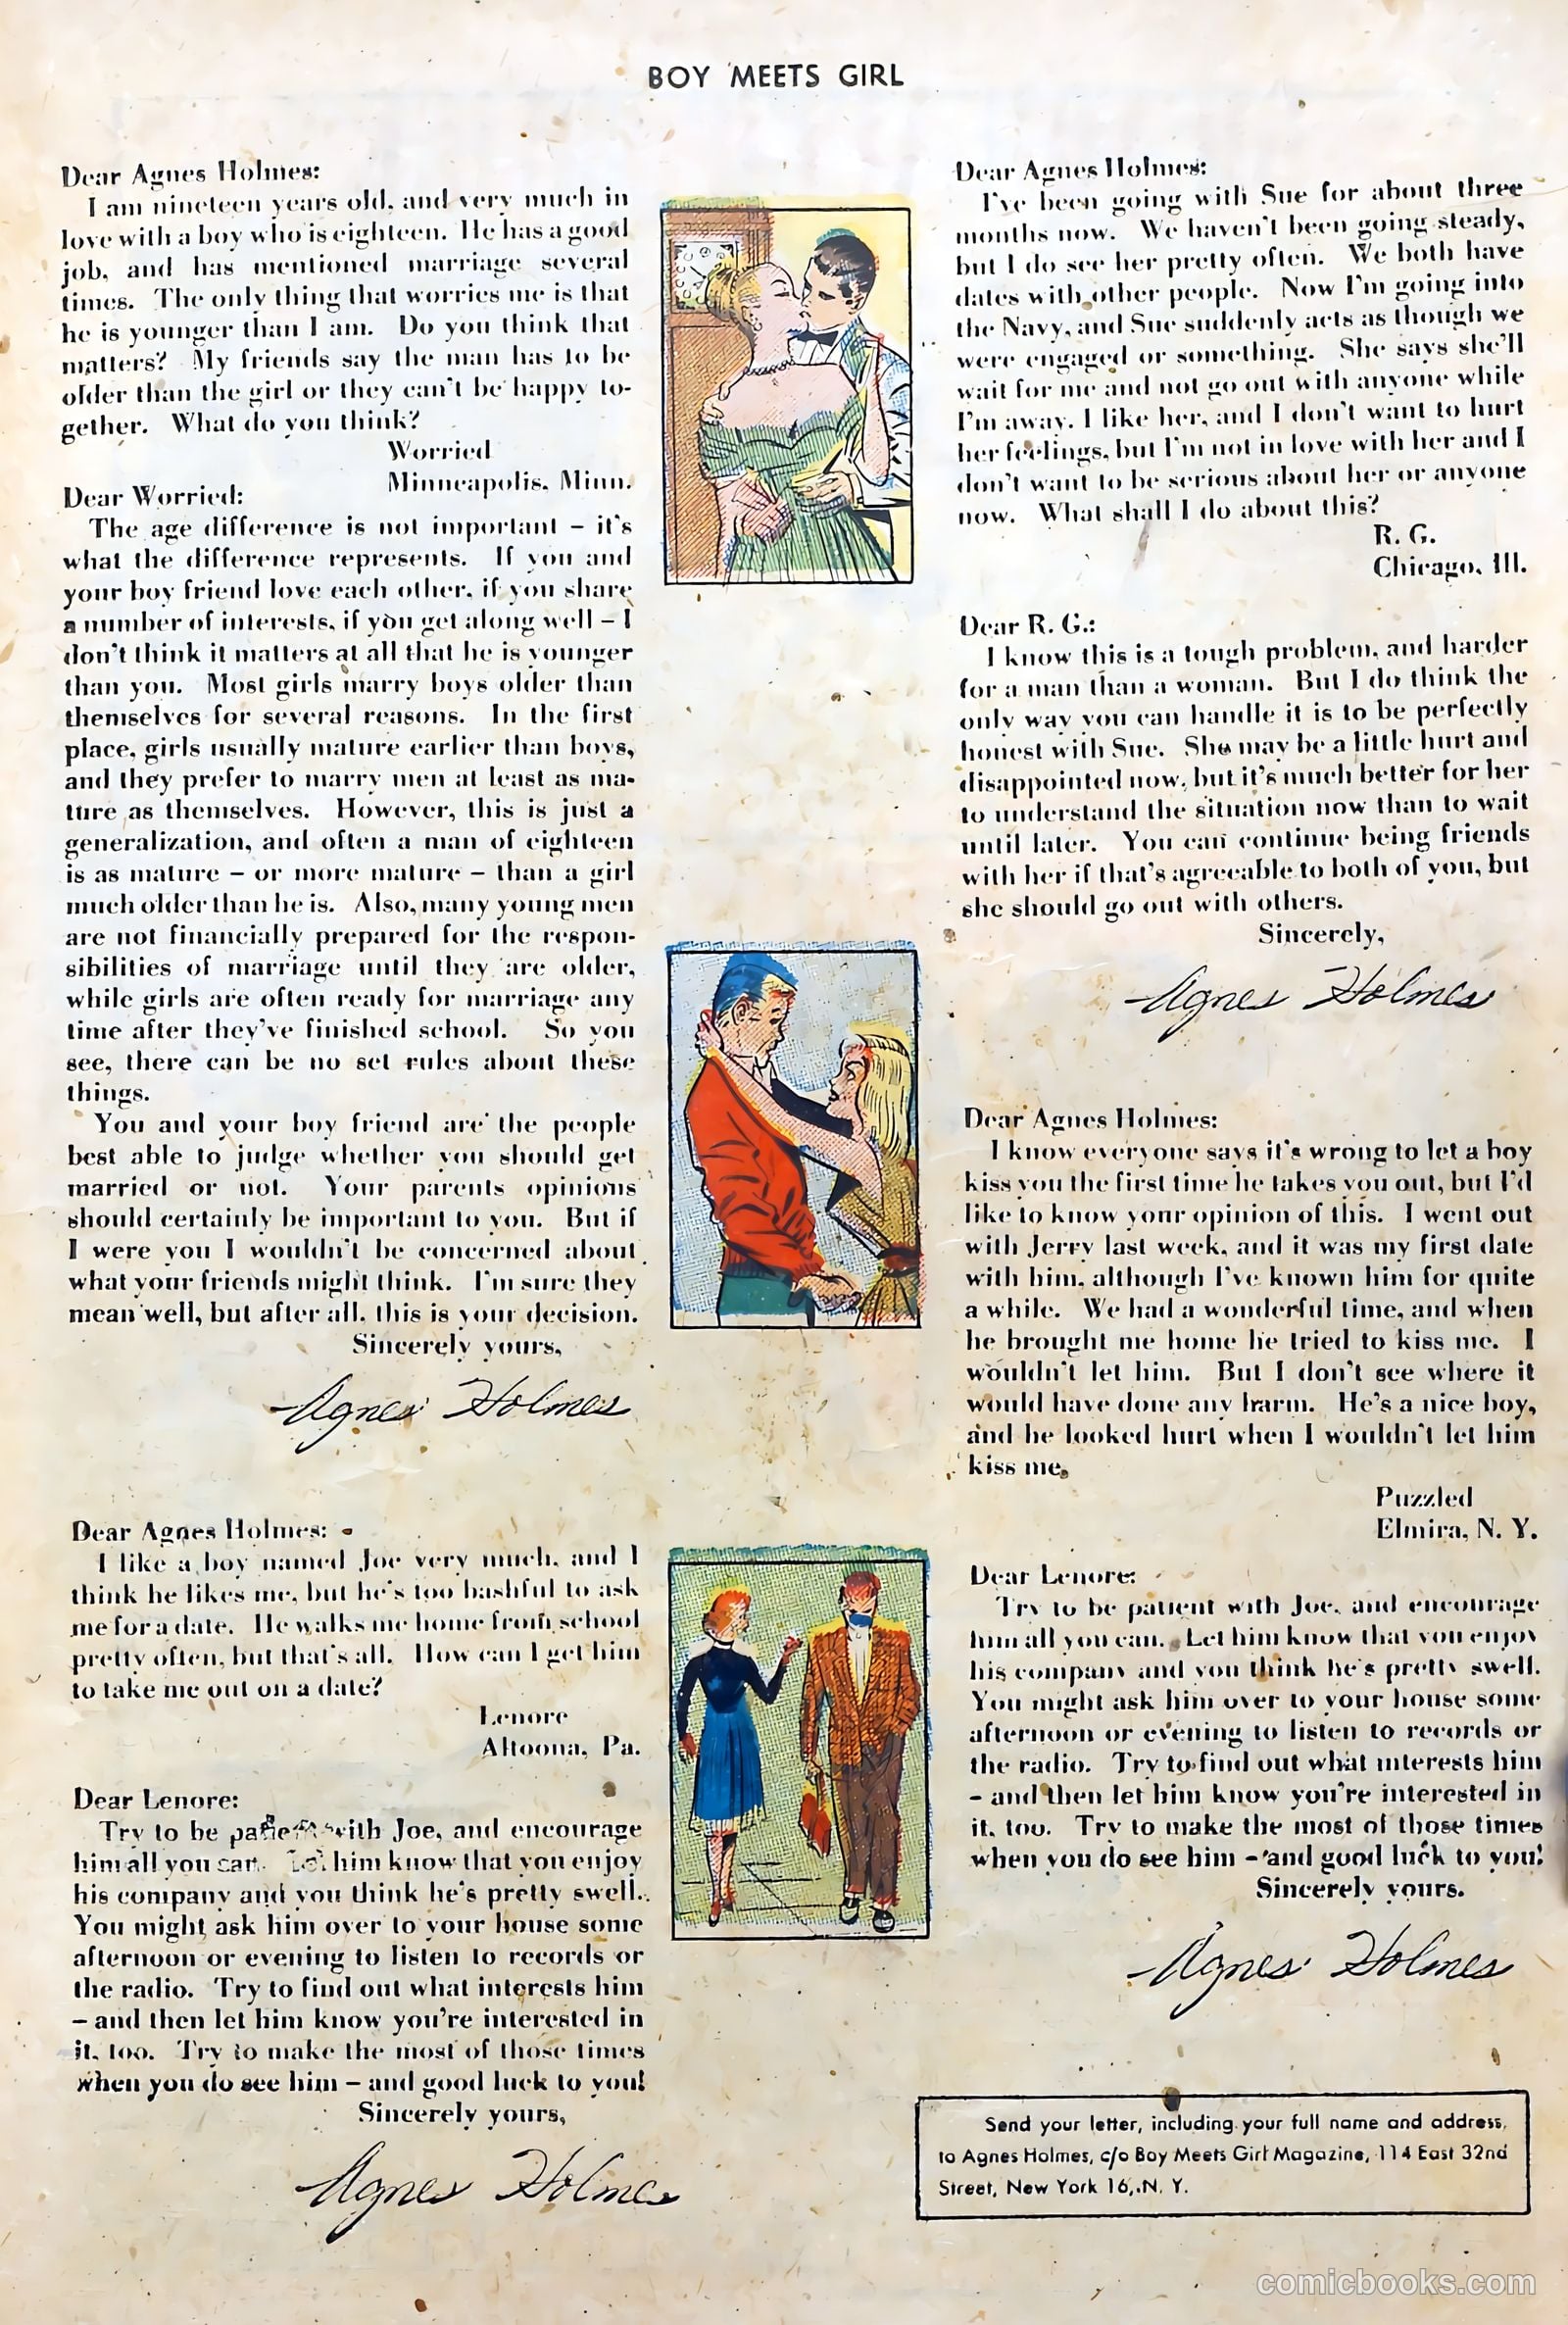 BOY MEETS GIRL
Dear Agnes Holmes:
I am nineteen years old, and very much in
love with a boy who is eighteen. He has a good
job, and has mentioned marriage several
times. The only thing that worries me is that
he is younger than I am. Do you think that
matters? My friends say the man has to be
older than the girl or they can't be happy to-
gether. What do you think?
Worried
Minneapolis, Minn.
Dear Worried:
The age difference is not important – it's
what the difference represents. If you and
your boy friend love each other, if you share
a number of interests, if you get along well – I
don't think it matters at all that he is younger
than you. Most girls marry boys older than
themselves for several reasons. In the first
place, girls usually mature earlier than boys,
and they prefer to marry men at least as ma-
ture as themselves. However, this is just a
generalization, and often a man of eighteen
is as mature – or more mature – than a girl
much older than he is. Also, many young men
are not financially prepared for the respon-
sibilities of marriage until they are older,
while girls are often ready for marriage any
time after they've finished school. So you
see, there can be no set rules about these
things.
You and your boy friend are the people
best able to judge whether you should get
married or not. Your parents opinions
should certainly be important to you. But if
I were you I wouldn't be concerned about
what your friends might think. I'm sure they
mean well, but after all, this is your decision.
Sincerely yours,
Agnes Holmes
Dear Agnes Holmes:
I like a boy named Joe very much, and I
think he likes me, but he's too bashful to ask
me for a date. He walks me home from school
pretty often, but that's all. How can I get him
to take me out on a date?
Lenore
Altoona, Pa.
Dear Lenore:
Try to be patient with Joe, and encourage
him all you can. Let him know that you enjoy
his company and you think he's pretty swell.
You might ask him over to your house some
afternoon or evening to listen to records or
the radio. Try to find out what interests him
– and then let him know you're interested in
it, too. Try to make the most of those times
when you do see him – and good luck to you!
Sincerely yours,
Agnes Holmes
Dear Agnes Holmes:
I've been going with Sue for about three
months now. We haven't been going steady,
but I do see her pretty often. We both have
dates with other people. Now I'm going into
the Navy, and Sue suddenly acts as though we
were engaged or something. She says she'll
wait for me and not go out with anyone while
I'm away. I like her, and I don't want to hurt
her feelings, but I'm not in love with her and I
don't want to be serious about her or anyone
now. What shall I do about this?
R. G.
Chicago, Ill.
Dear R. G.:
I know this is a tough problem, and harder
for a man than a woman. But I do think the
only way you can handle it is to be perfectly
honest with Sue. She may be a little hurt and
disappointed now, but it's much better for her
to understand the situation now than to wait
until later. You can continue being friends
with her if that's agreeable to both of you, but
she should go out with others.
Sincerely,
Agnes Holmes
Dear Agnes Holmes:
I know everyone says it's wrong to let a boy
kiss you the first time he takes you out, but I'd
like to know your opinion of this. I went out
with Jerry last week, and it was my first date
with him, although I've known him for quite
a while. We had a wonderful time, and when
he brought me home he tried to kiss me. I
wouldn't let him. But I don't see where it
would have done any harm. He's a nice boy,
and he looked hurt when I wouldn't let him
kiss me.
Puzzled
Elmira, N. Y.
Dear Lenore:
Try to be patient with Joe, and encourage
him all you can. Let him know that you enjoy
his company and you think he's pretty swell.
You might ask him over to your house some
afternoon or evening to listen to records or
the radio. Try to find out what interests him
– and then let him know you're interested in
it, too. Try to make the most of those times
when you do see him – and good luck to you!
Sincerely yours.
Agnes Holmes
Send your letter, including your full name and address,
to Agnes Holmes, c/o Boy Meets Girl Magazine, 114 East 32nd
Street, New York 16, N. Y.
comicbooks.com